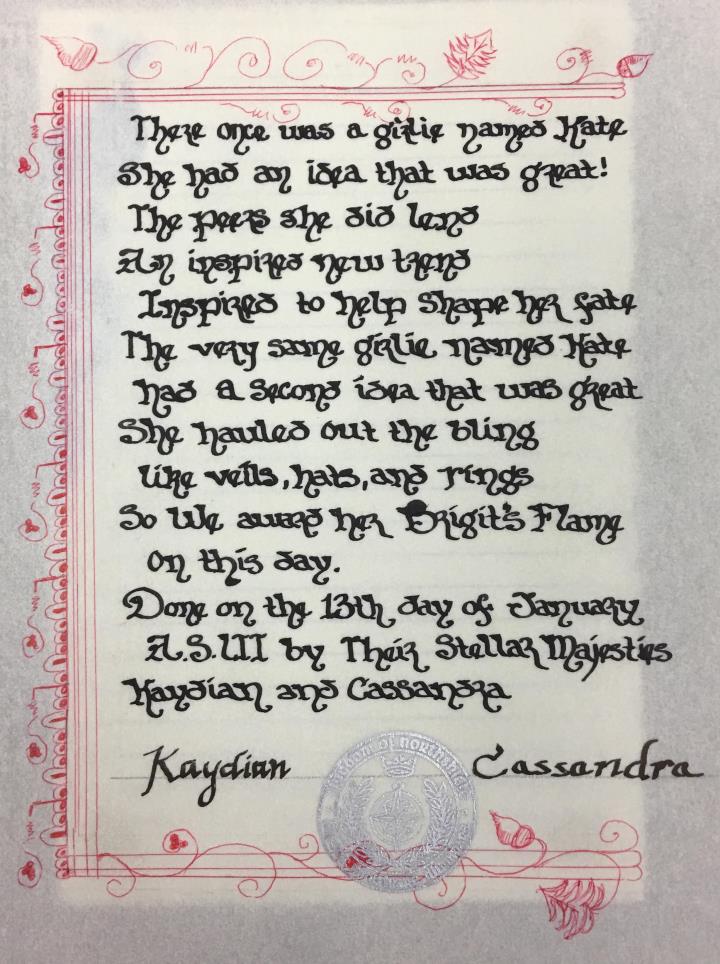 There once was a girlie named Kate
She had an idea that was great!
The peers she did lend
An inspired new trend
Inspired to help Shape her fate
The very same girlie named Kate
had a Second idea that was great
She hauled out the bling
like veils, hats, and rings
So We award her Brigit's Flame
On this day.
Done on the 13th day of January
A.S.LII by Their Stellar Majesties
Kaydian and Cassandra
Kaydian Cassandra
kingdom of northshield